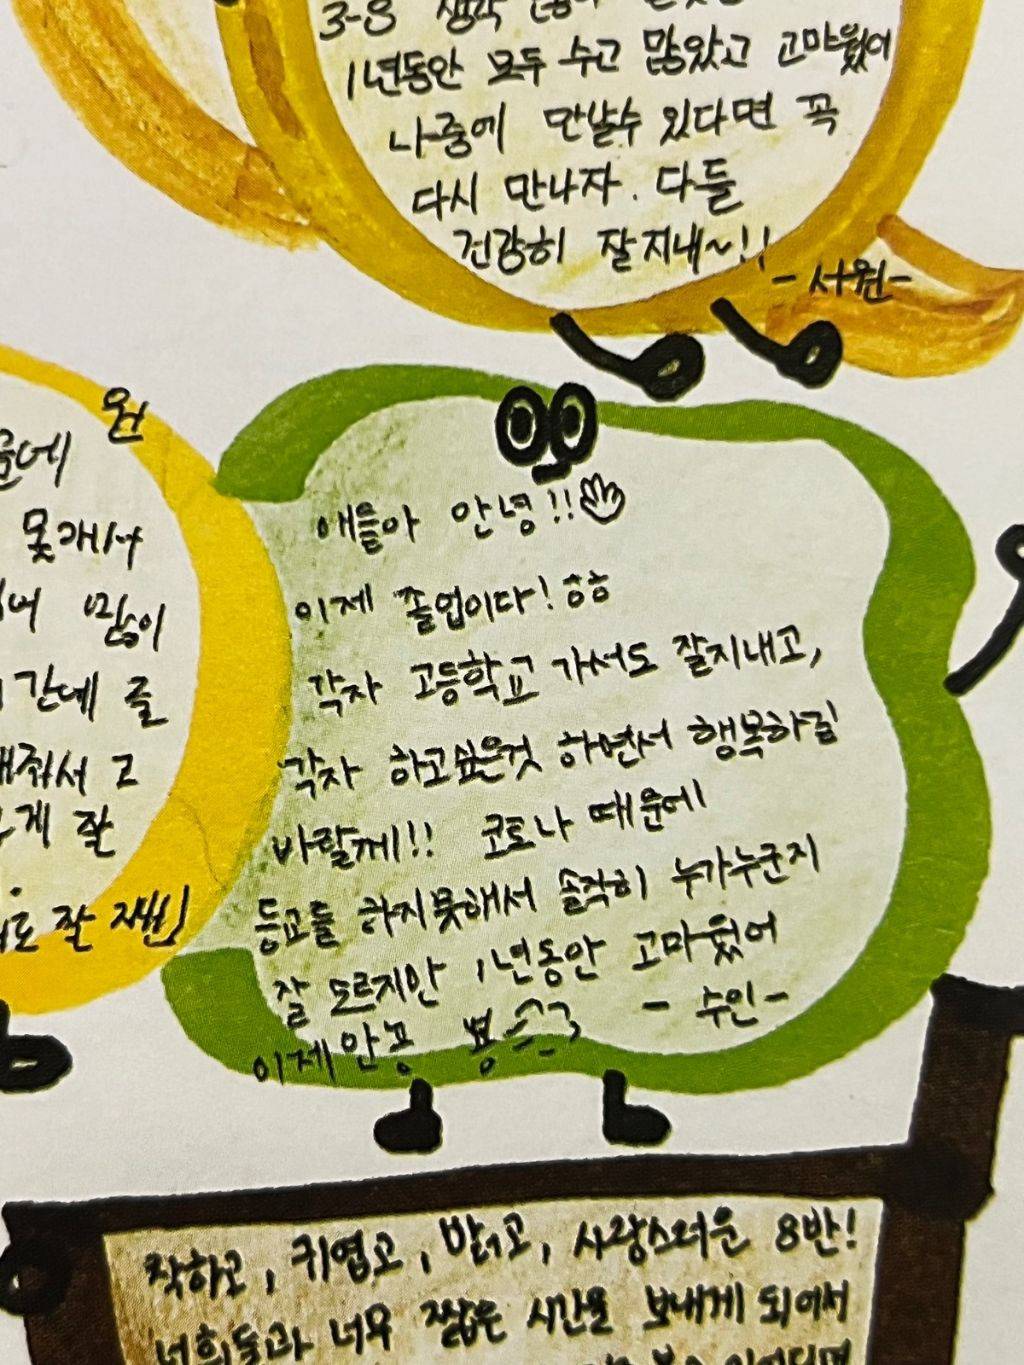 3-8 생각
1년동안 모두 수고 많았고 고마웠어
나중에 만날수 있다면 꼭
다시 만나자. 다들
건강히 잘지내~!!
- 서원 -
원
문에
못개서
많이
간데 줄
해줘서 그
게 잘
도 잘 지내
애들아 안녕!!
이제 졸업이다! ㅎㅎ
각자 고등학교 가서도 잘지내고,
각자 하고싶은것 하면서 행복하길
바랄께!! 코로나 때문에
등교를 하지못해서 솔직히 누가누군지
잘 모르지만 1년동안 고마웠어
이제 안녕 뿅
- 수인 -
착하고, 귀엽고, 밝고, 사랑스러운 8반!
너희들과 너무 짧은 시간을 보내게 되어서